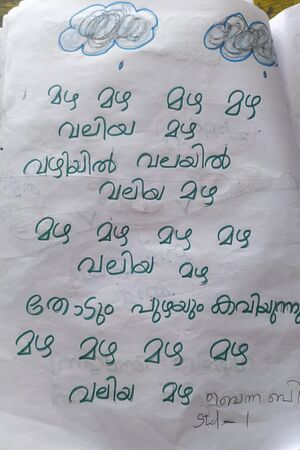 മഴ മഴ മഴ മഴ
വലിയ മഴ
വഴിയിൽ വലയിൽ
വലിയ മഴ
മഴ മഴ മഴ മഴ
വലിയ മഴ
തോടും പുഴയും കവിയുന്നു
മഴ മഴ മഴ മഴ
വലിയ മഴ
ബെന്ന ബി
Std - 1